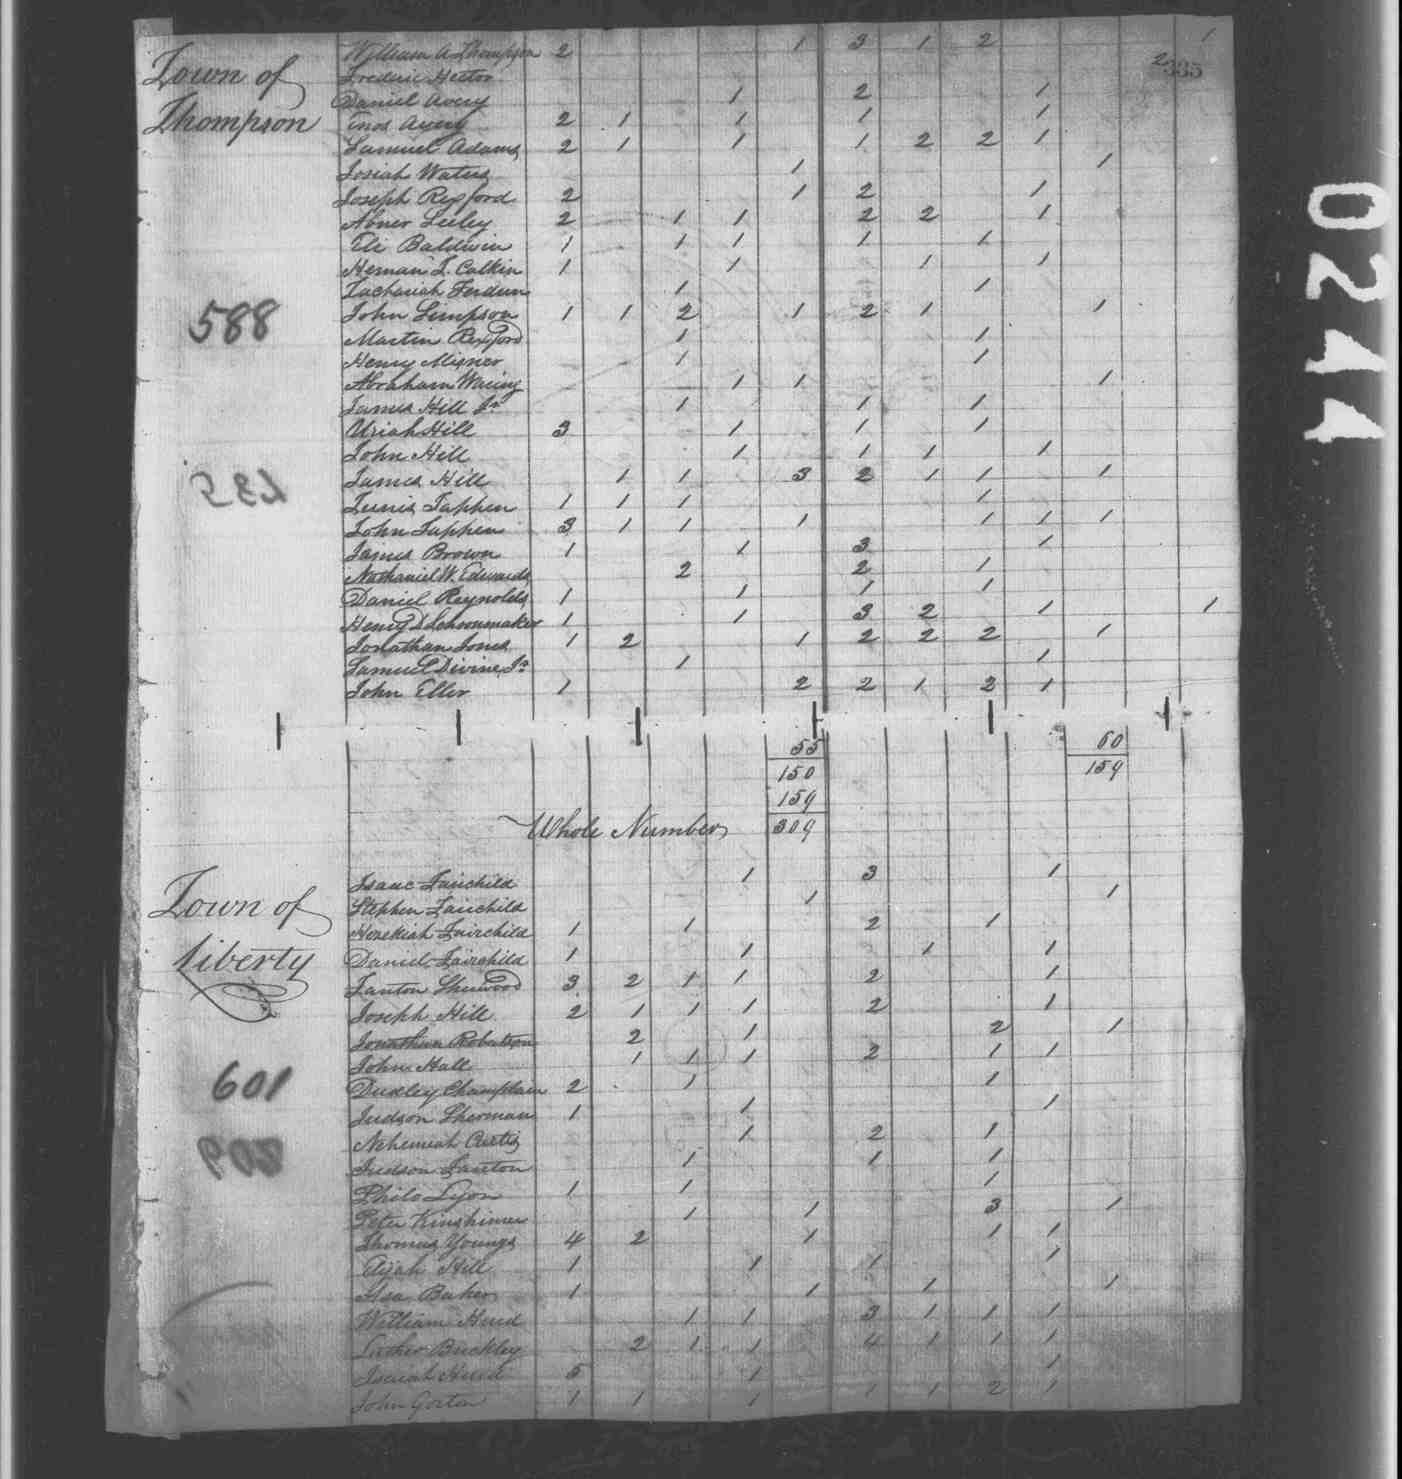 Town of
Thompson
William A Thompson 2 1 3 1 2 1
Frederic Hector 2 335
Daniel Avery 1 2 1
Enos Avery 2 1 1 1 1
Samuel Adams 2 1 1 1 2 2 1
Josiah Waters 1 1
Joseph Rexford 2 1 2 1
Abner Seeley 2 1 1 2 2 1
Eli Baldwin 1 1 1 1 1
Heman T. Calkin 1 1 1 1
Zachariah Ferdun 1 1
588
John Simpson 1 1 2 1 2 1 1
Martin Rexford 1 1
Henry Misner 1 1
Abraham Waring 1 1 1
James Hill Jr 1 1 1
Uriah Hill 3 1 1 1
John Hill 1 1 1 1
James Hill 1 1 3 2 1 1 1
Tunis Tappen 1 1 1 1
John Tappen 3 1 1 1 1 1 1
James Brown 1 1 3 1
Nathaniel W. Edwards 2 2 1
Daniel Reynolds 1 1 1 1
Henry D Schoonmaker 1 1 3 2 1 1
Jonathan Jones 1 2 1 2 2 2 1
Samuel Divine Jr 1 1
John Eller 1 2 2 1 2 1
55 60
150 159
159
Whole Number 309
Town of
Liberty
Isaac Fairchild 1 3 1
Stephen Fairchild 1 1
Hezekiah Fairchild 1 1 2 1
Daniel Fairchild 1 1 1 1
Fanton Sherwood 3 2 1 1 2 1
Joseph Hill 2 1 1 1 2 1
Jonathan Robertson 2 1 2 1
John Hall 1 1 1 2 1 1
601
Dudley Champlain 2 1 1
Judson Sherman 1 1 1
Nehemiah Curtis 1 2 1
Judson Fanton 1 1 1
Philo Lyon 1 1 1
Peter Kinshimer 1 1 3 1
Thomas Youngs 4 2 1 1 1
Elijah Hill 1 1 1 1
Asa Baker 1 1 1 1
William Hurd 1 1 3 1 1 1
Luther Buckley 2 1 1 4 1 1 1
Isaiah Hurd 5 1 1
John Gorton 1 1 1 1 1 2 1
0244